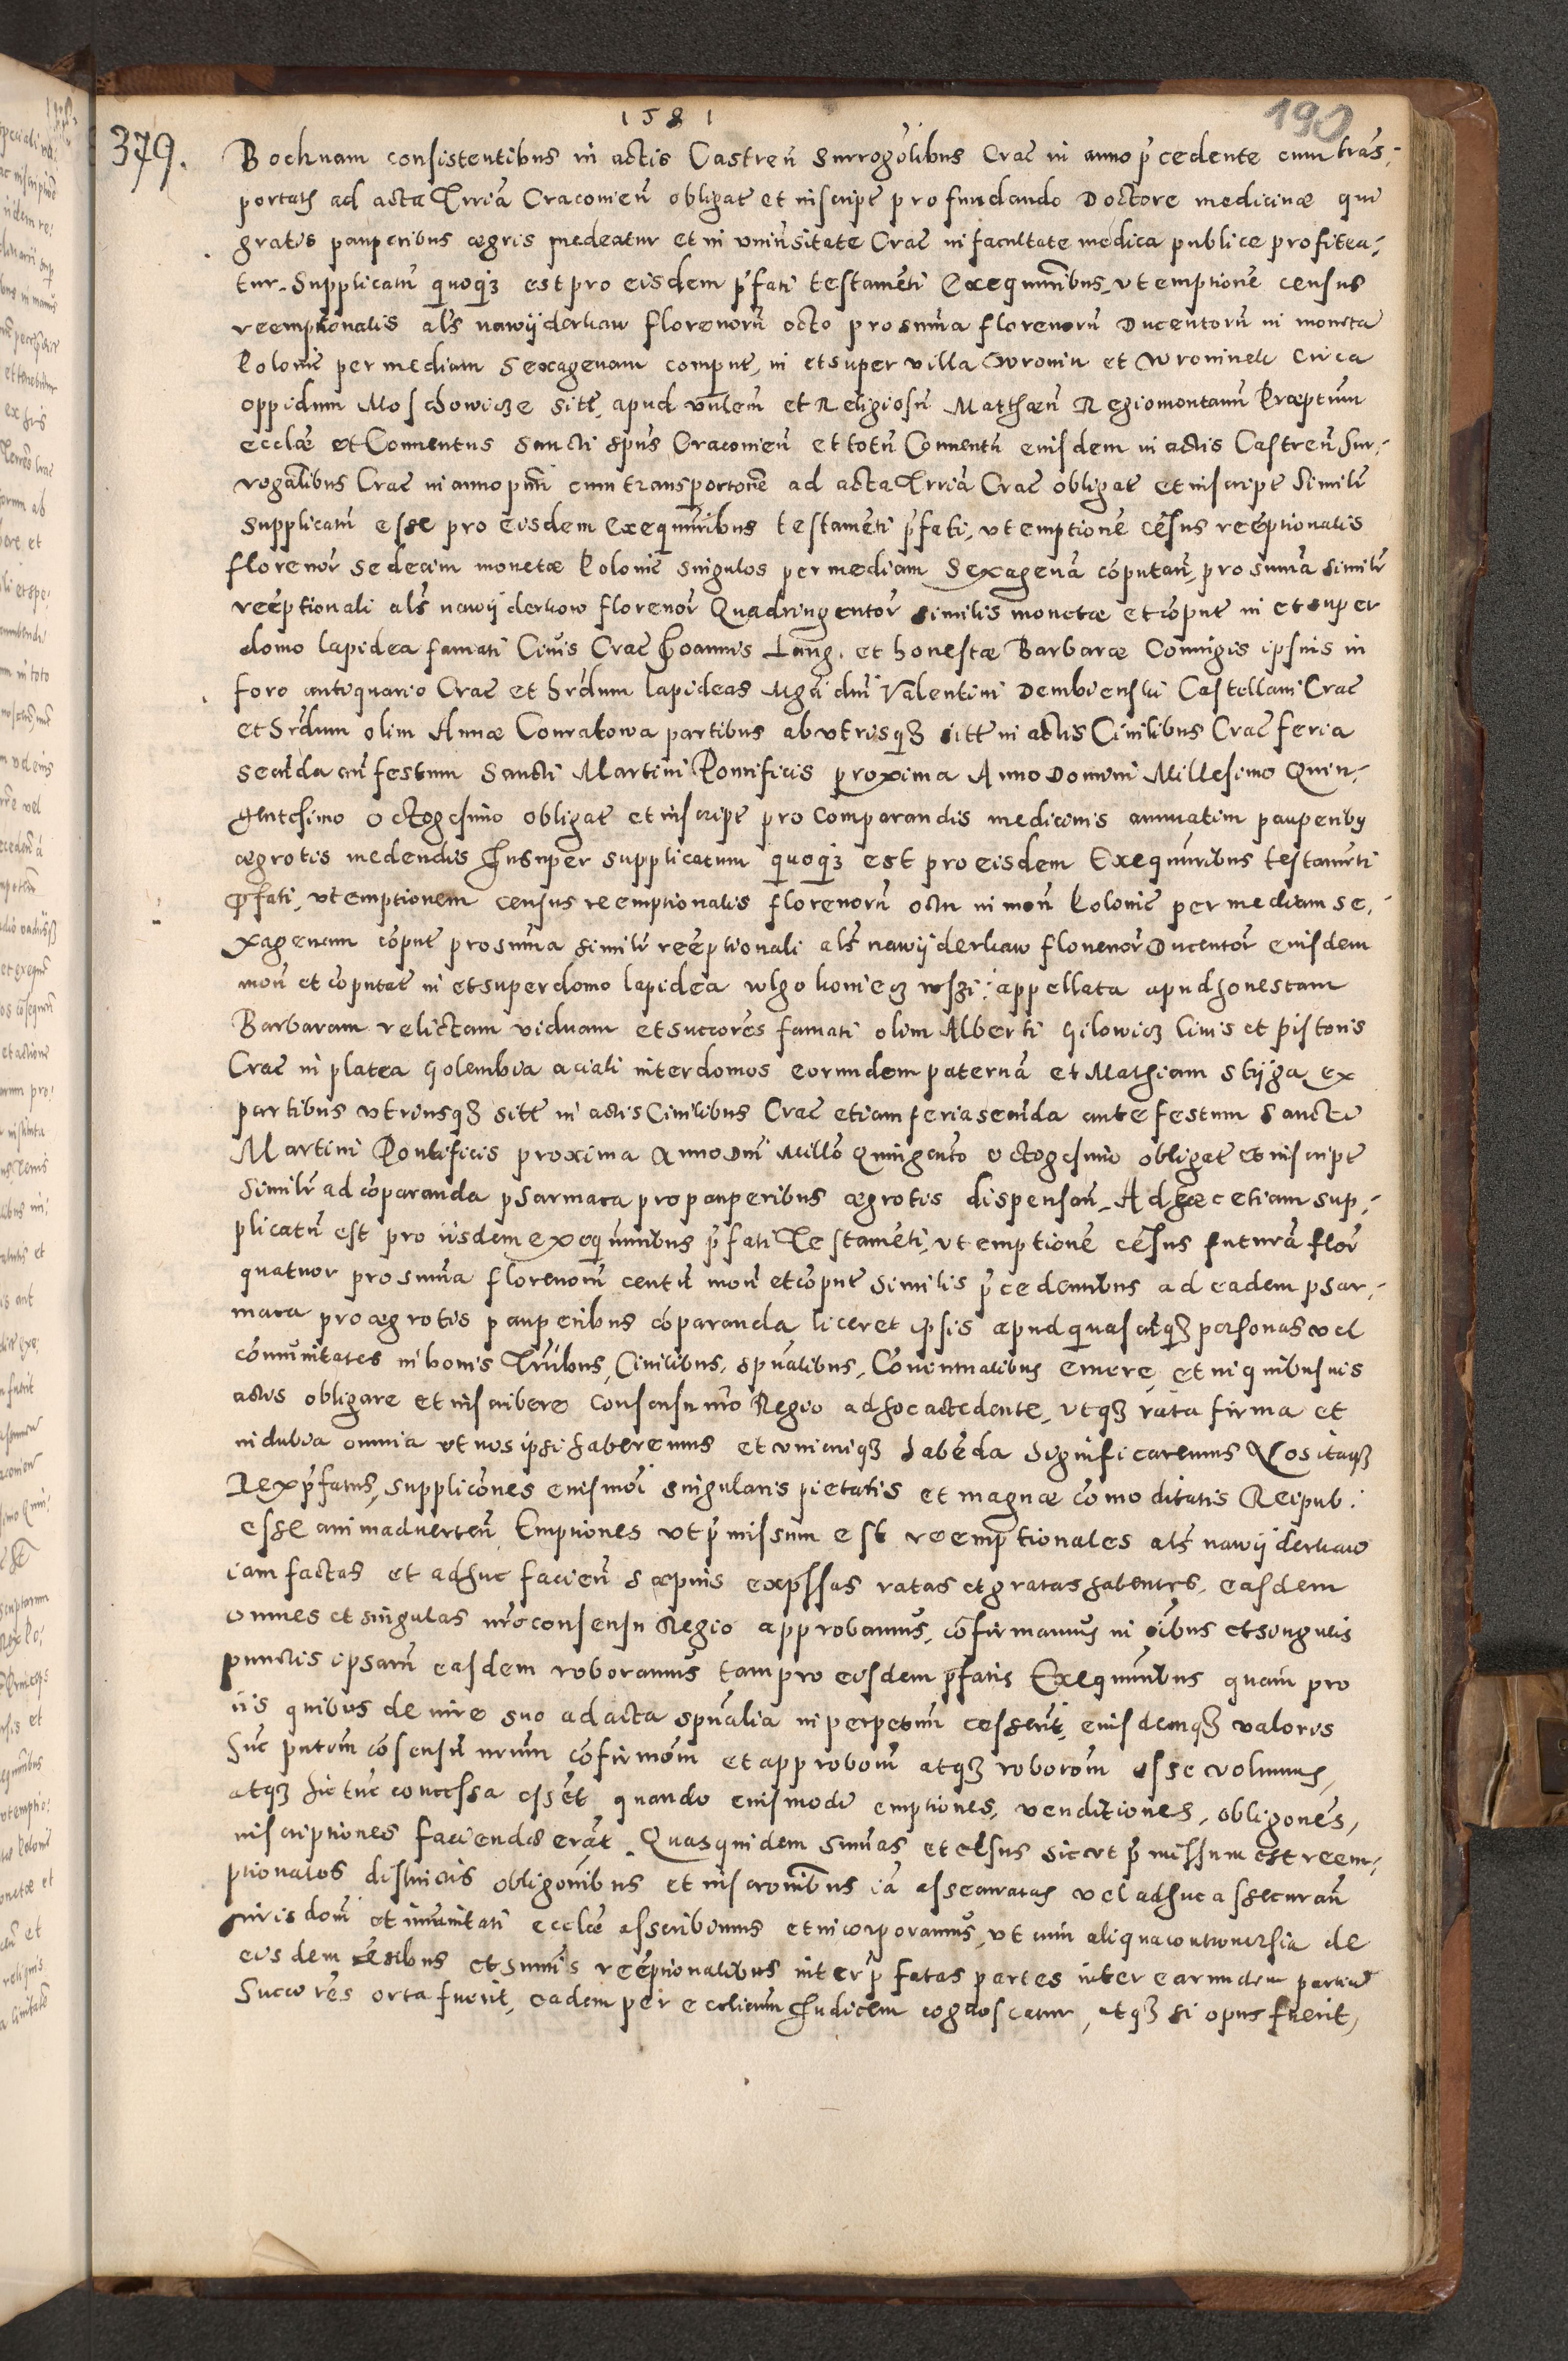 1581
190
379.
Bochnam consistentibus in actis Castreñ Surrogãlibus Crac̃ in anno p̃cedente cum trãs,
portatis ad acta Trriã Cracovieñ obligat̃ et inscript̃ pro fundando Doctore medicinæ qui
gratis pauperibus ægris medeatur et in uniṽsitate Crac̃ in facultate medica publice profitea,
tur. Supplicatũ quoqȝ est pro eisdem p̃fati testamẽti Exequutoribus, ut emptionẽ census
reemptionalis als̃ nawÿderkaw florenorũ octo pro sum̃a florenorũ Ducentorũ in moneta
Polonic̃ per mediam Sexagenam comput̃, in et super villa Wronin et Wroninek circa
oppidum Moschowicze sitt̃, apud ven̄lem̃ et Religiosũ Matthæũ Regiomontanũ Præptum
ecclæ et Conventus Sancti Spũs Cracovieñ et totũ Conventũ eiusdem in actis Castreñ Sur,
rogalibus Crac̃ in anno pñti cum transportõne ad acta Trriã Crac̃ obligat̃ et inscript̃ Simil̃r
supplicatũ esse pro eisdem Exequutoribus testamẽti p̃fati, ut emptionẽ cẽsus reẽptionalis
florenor̃ sedecim monetæ Polonic̃ singulos per mediam Sexagenã cõputañ, pro sum̃a simil̃r
reẽptionali als̃ nawÿderkow florenor̃ Quadringentor̃ similis monetæ et cõput̃ in et super
domo lapidea famati Civis Crac̃ Joannis Lang, et honestæ Barbaræ Coniugis ipsius in
foro antiquario Crac̃ et hr̃dum lapideas Mgci dñi Valentini Dembienski Castellani Crac̃
et hr̃dum olim Annæ Conratowa partibus ab utrisqȝ sitt̃ in actis Civilibus Crac̃ feria
secũda añ festum Sancti Martini Pontificis proxima Anno Domini Millesimo Quin,
gentesimo octogesimo obligat̃ et inscript̃ pro comparandis medicinis annuatim pauperibȝ
ægrotis medendis Insuper supplicatum quoqȝ est pro eisdem Exequutoribus testamẽti
p̃fati, ut emptionem census reemptionalis florenorũ octu in moñ Polonic̃ per mediam se,
xagenam cõput̃ pro sum̃a simil̃r reẽptionali als̃ nawÿderkaw florenor̃ Ducentor̃ eiusdem
moñ et cõputat̃ in et super domo lapidea vulgo koniecz wszi: appellata apud honestam
Barbaram relictam viduam et succõres famati olim Alberti Gilowicz Civis et pistoris
Crac̃ in platea Golembia aciali inter domos eorundem paternã et Mathiam Stÿga ex
partibus utriusqȝ sitt̃ in actis Civilibus Crac̃ etiam feria secũda ante festum Sancti
Martini Pontificis proxima Anno Dñi Millõ Quingentõ octogesimo obligat̃ et inscript̃
Simil̃r ad cõparanda psarmaca pro pauperibus ægrotis dispensañ. Ad hæc etiam sup,
plicatũ est pro iisdem exequutoribus p̃fati Testamẽti, ut emptionẽ cẽsus futurã flor̃
quatuor pro sum̃a florenorũ centũ moñ et cõput̃ similis p̃cedentibus ad eadem psar,
maca pro ægrotis pauperibus cõparanda liceret ipsis apud quascũqȝ personas vel
cõmunitates in bonis Trr̃ibus, Civilibus, spũalibus, Conventualibus emere, et in quibusvis
actis obligare et inscribere Consensu nr̃o Regio ad hoc accedente, utqȝ rata firma et
indubia omnia ut nos ipsi haberemus et unicuiqȝ habẽda significaremus Nos itaqȝ
Rex p̃fatus, supplicõnes eiusmoĩ singularis pietatis et magnæ cõmoditatis Reipub:
esse animadverteñ Emptiones ut p̃missum est reemptionales als̃ nawÿderkaw
iam factas et adhuc facieñ sæpius exp̃ssas ratas et gratas habentes, easdem
omnes et singulas nr̃o consensu Regio approbamus, cõfirmamus in oĩbus et singulis
punctis ipsarũ easdem roboramus tam pro eisdem p̃fatis Exequutoribus quam pro
iis quibus de iure suo ad acta spũalia in perpetuũ cesserit, eiusdemqȝ valoris
hũc pñtem cõsensũ nr̃um cõfirmõm et approbõm atqȝ roborõm esse volumus,
atqȝ hic tũc concessa essẽt quando eiusmodi emptiones, venditiones, obligõnes,
inscriptiones faciendæ erãt. Quasquidem sum̃as et cẽsus sicut p̃missum est reem,
ptionales distinctis obligõnibus et inscrõnibus iã assecuratas vel adhuc assecurañ
iurisdõni et im̃unitati ecclæ asscribimus et incorporamus, ut cum aliqua controversia de
eisdem cẽsibus et sum̃is reẽptionalibus inter p̃fatas partes inter earundem partiũ
Succõres orta fuerit, eadem per ecclicum Judicem cognoscatur, atqȝ si opus fuerit,